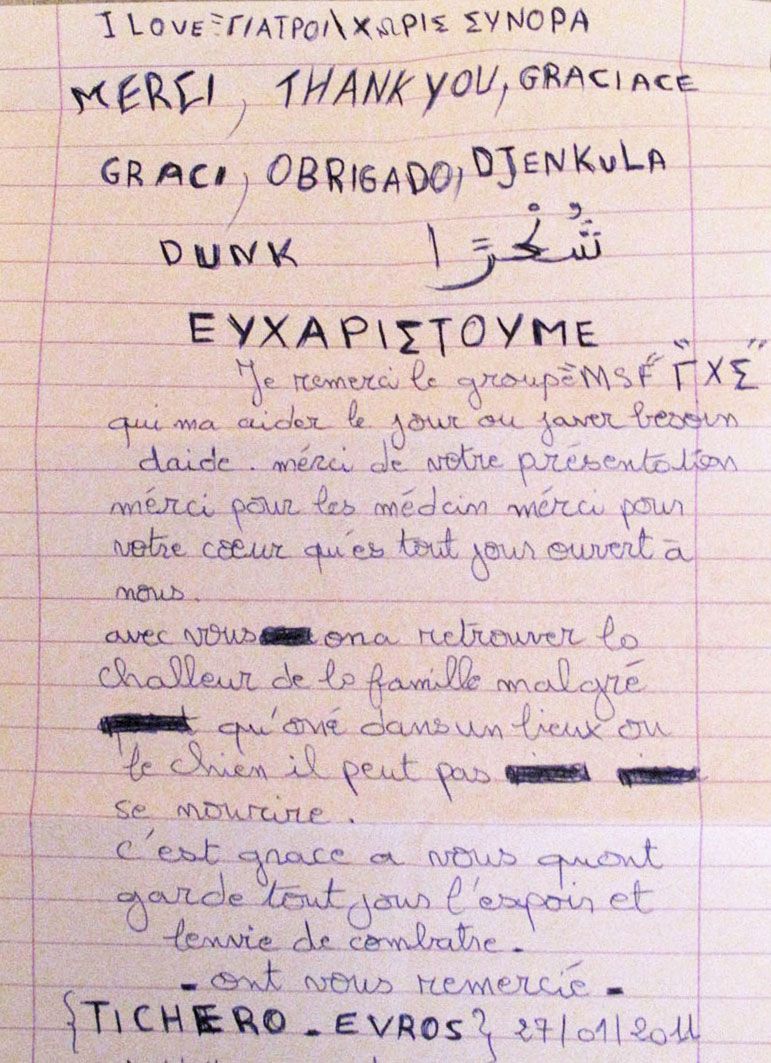 I LOVE "ΓΙΑΤΡΟΙ\ΧΩΡΙΣ ΣΥΝΟΡΑ
MERCI, THANK YOU, GRACIACE
GRACI, OBRIGADO, DJENKULA
DUNK شُكْرًا
ΕΥΧΑΡΙΣΤΟΥΜΕ
Je remerci le groupe "MSF" "ΓΧΣ"
qui ma aider le jour ou javer besoin
daide. mérci de votre présentation
mérci pour les médcin mérci pour
votre coeur qu'es tout jour ouvert à
nous.
avec vous ona retrouver la
challeur de la famille malgré
qu'oné dans un lieux ou
le chien il peut pas
se nourire.
c'est grace a vous quont
garde tout jous l'espoir et
lenvie de combatre.
- ont vous remercié -
{TICHERO - EVROS} 27/01/2011